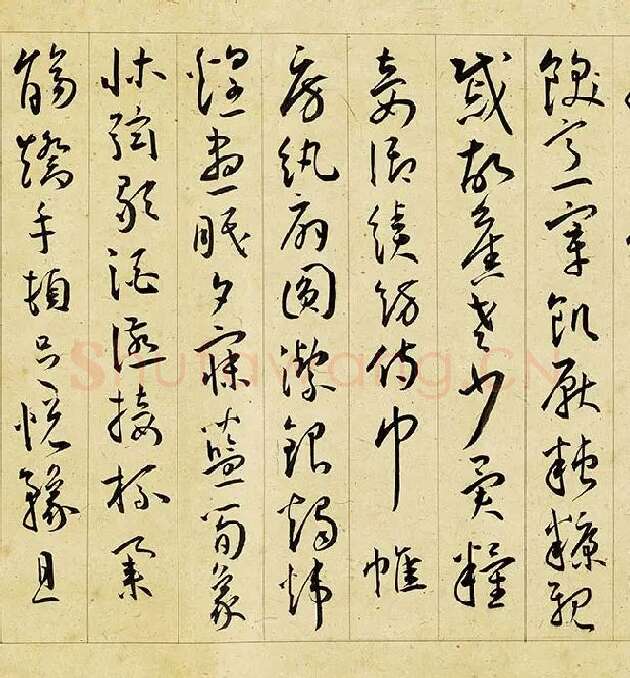 飫烹宰飢厭糟糠親
戚故舊老少異糧
妾御績紡侍巾帷
房紈扇圓潔銀燭煒
煌晝眠夕寐藍筍象
牀弦歌酒讌接杯舉
觴矯手頓足悅豫且
Shufawang.CN